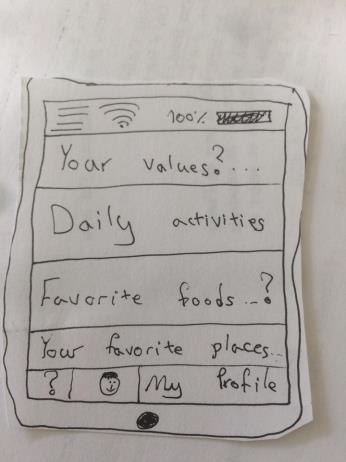 100%
Your values?...
Daily activities
Favorite foods...?
Your favorite places...
? My Profile